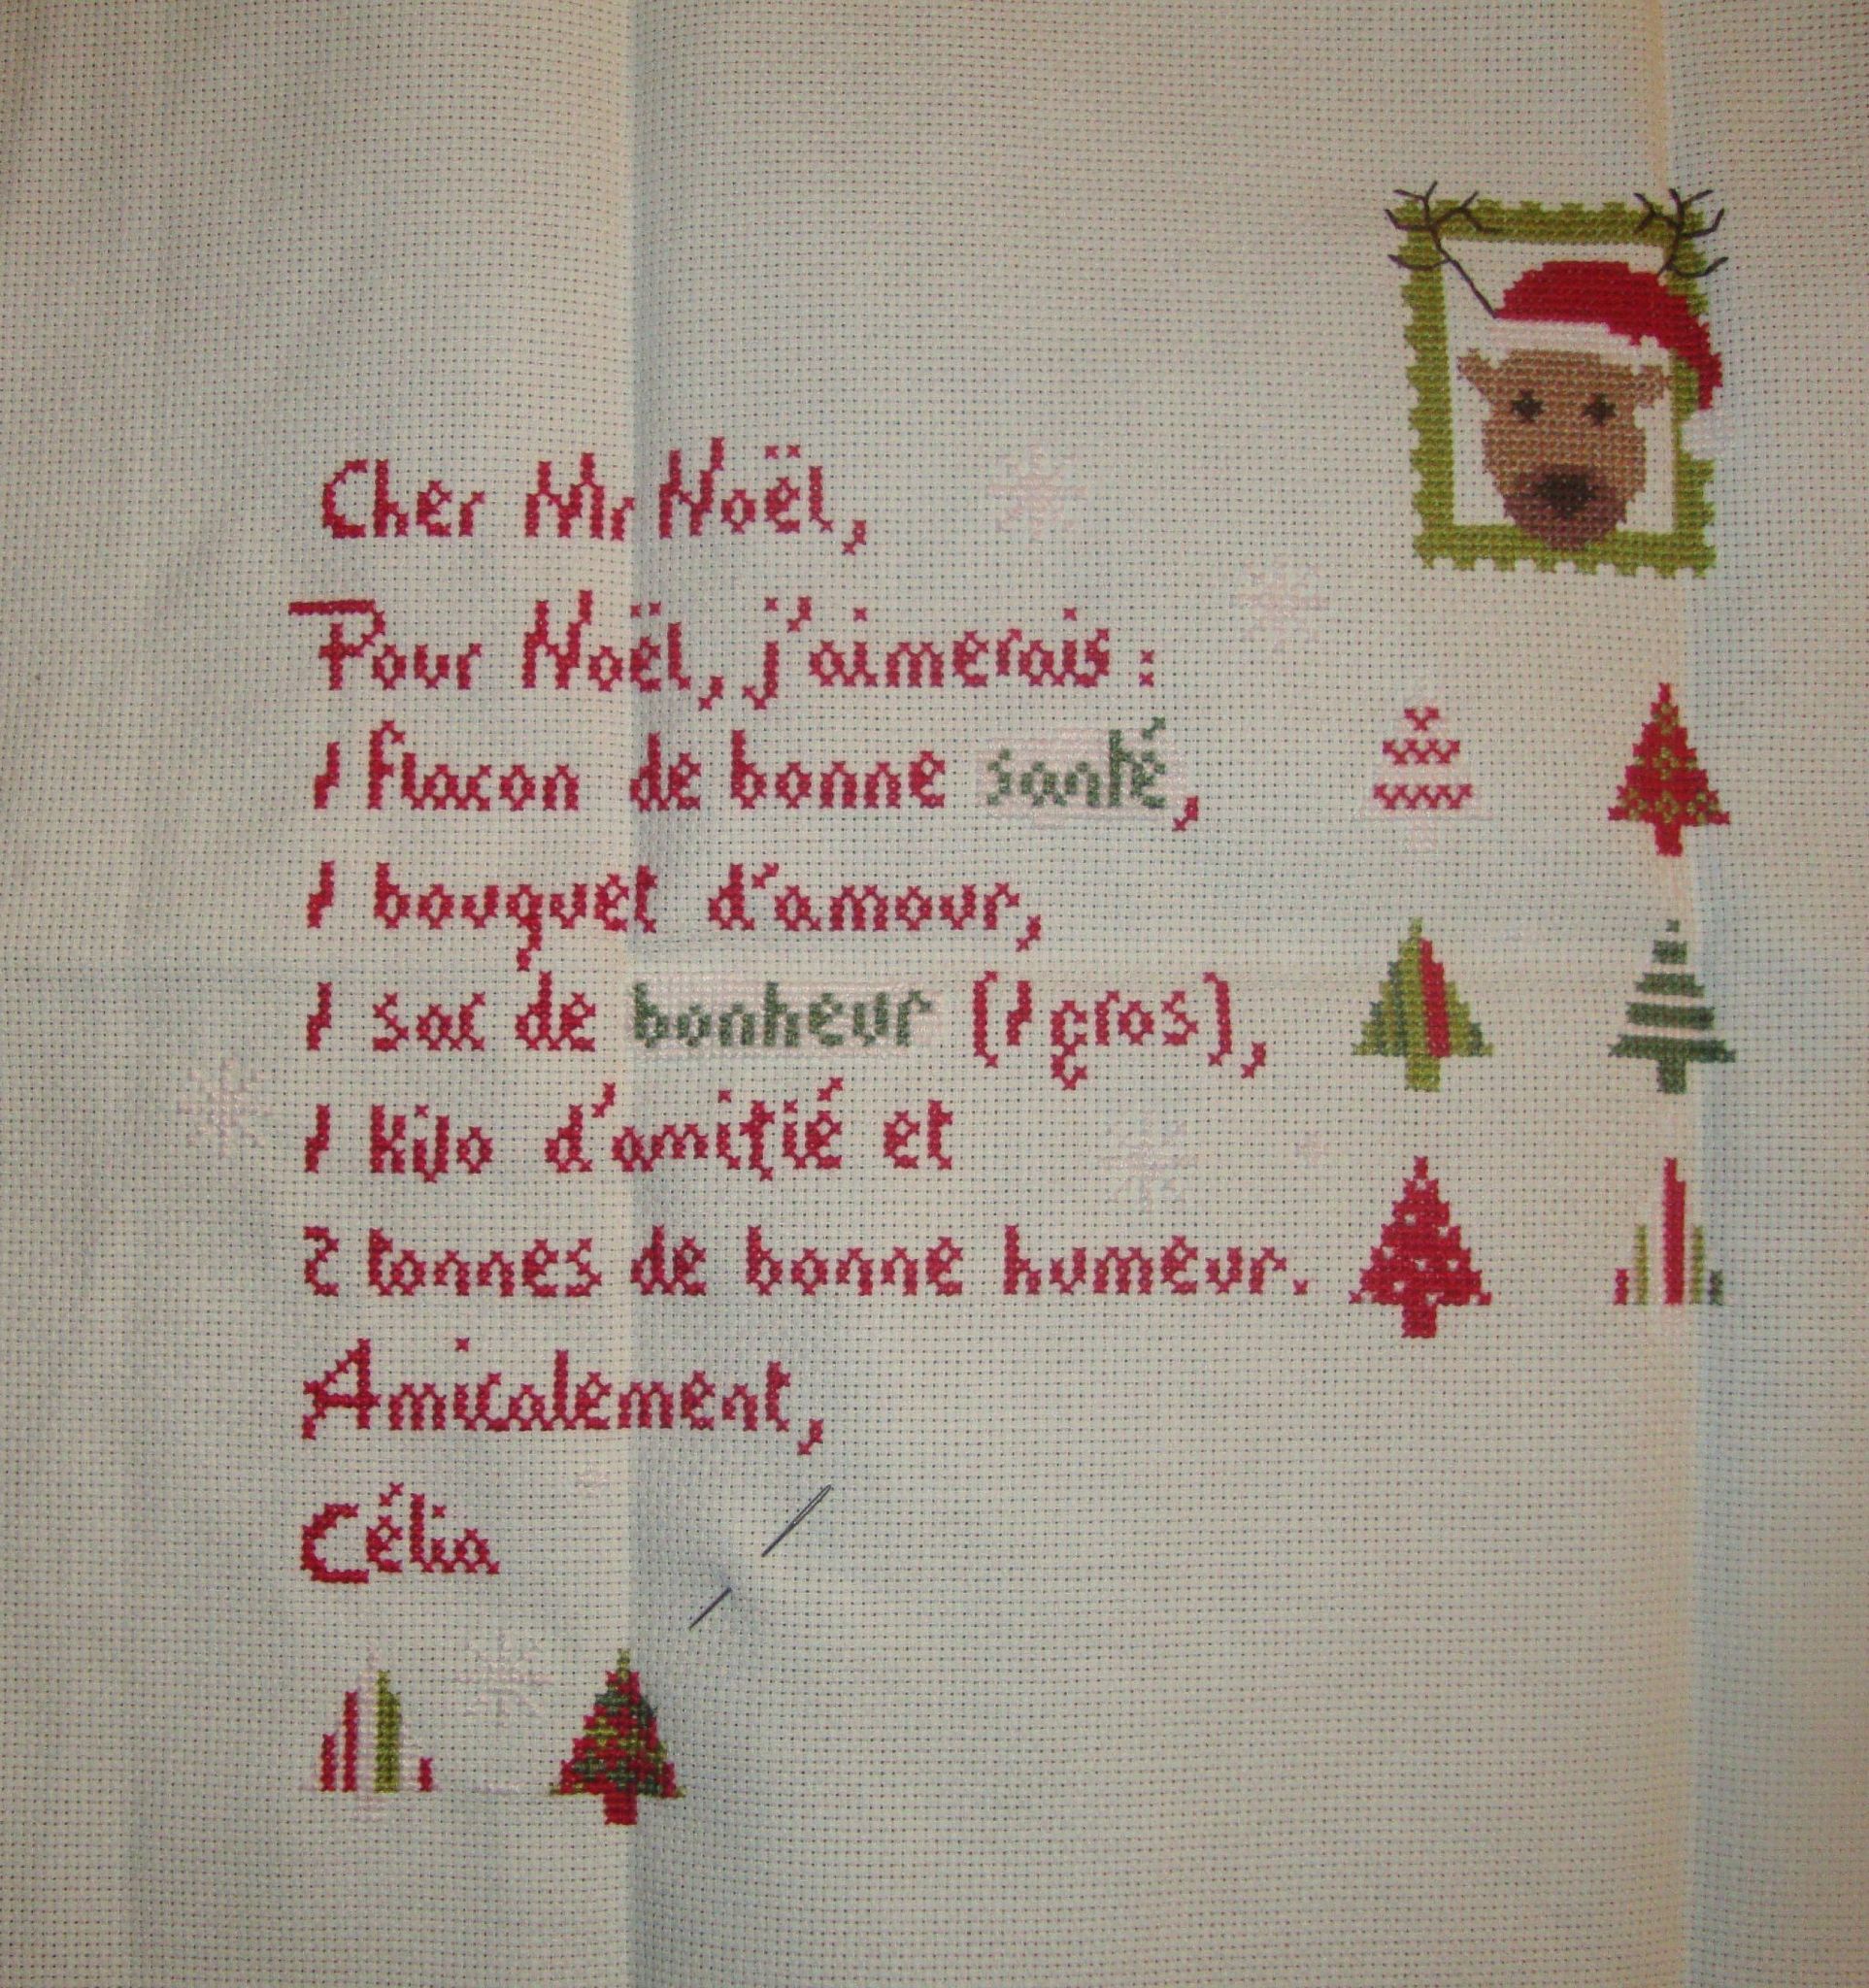 Cher Mr Noël,
Pour Noël, j'aimerais :
1 flacon de bonne santé,
1 bouquet d'amour,
1 sac de bonheur (1 gros),
1 kilo d'amitié et
2 tonnes de bonne humeur.
Amicalement,
Célia